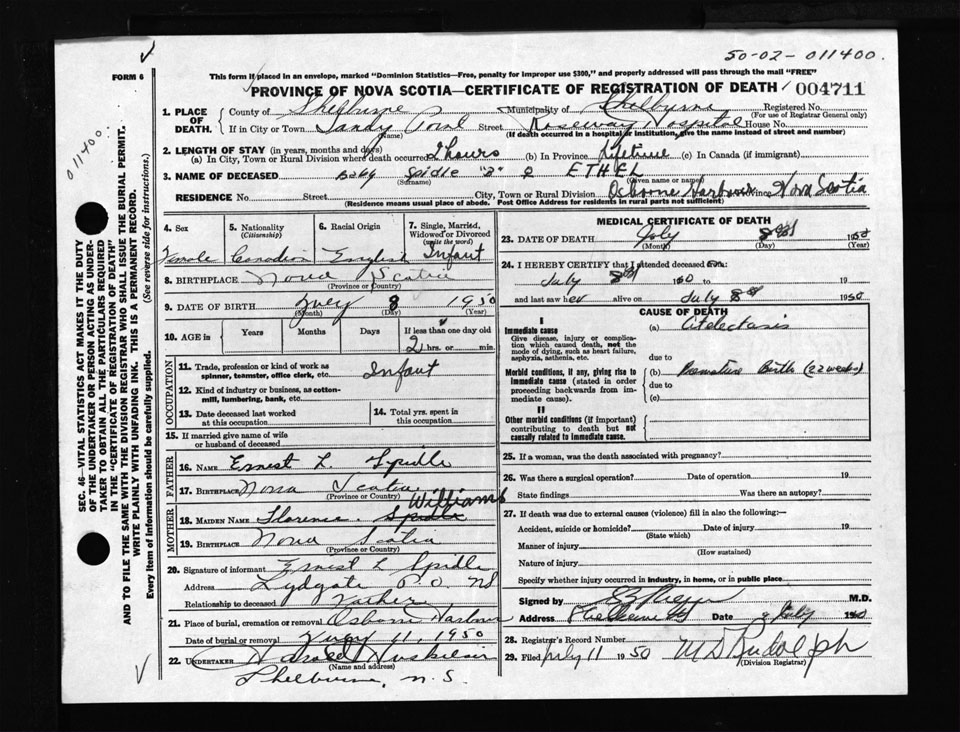 50-02-011400.
FORM 6
This form if placed in an envelope, marked "Dominion Statistics—Free, penalty for improper use $300," and properly addressed will pass through the mail "FREE"
PROVINCE OF NOVA SCOTIA—CERTIFICATE OF REGISTRATION OF DEATH / 004711
1. PLACE OF DEATH. County of Shelburne Municipality of Shelburne Registered No.
(For use of Registrar General only)
If in City or Town Sandy Point Street Roseway Hospital House No.
(Name) (If death occurred in a hospital or institution, give the name instead of street and number)
2. LENGTH OF STAY (in years, months and days)
(a) In City, Town or Rural Division where death occurred 2 hours (b) In Province Lifetime (c) In Canada (if immigrant)
3. NAME OF DECEASED Baby Spidle "2" ♀ ETHEL
(Surname) (Given name or names)
RESIDENCE No. Street City, Town or Rural Division Osborne Harbour Province Nova Scotia
(Residence means usual place of abode. Post Office Address for residents in rural parts not sufficient)
4. Sex
Female
5. Nationality
(Citizenship)
Canadian
6. Racial Origin
English
7. Single, Married, Widowed or Divorced
(write the word)
Infant
8. BIRTHPLACE Nova Scotia
(Province or Country)
9. DATE OF BIRTH July 8 1950
(Month) (Day) (Year)
10. AGE in Years Months Days If less than one day old
2 hrs. or min.
OCCUPATION
11. Trade, profession or kind of work as spinner, teamster, office clerk, etc. Infant
12. Kind of industry or business, as cotton-mill, lumbering, bank, etc.
13. Date deceased last worked at this occupation
14. Total yrs. spent in this occupation
15. If married give name of wife or husband of deceased
FATHER
16. NAME Ernest L. Spidle
17. BIRTHPLACE Nova Scotia
(Province or Country)
MOTHER
Williams
18. MAIDEN NAME Florence Spidle
19. BIRTHPLACE Nova Scotia
(Province or Country)
20. Signature of informant Ernest L Spidle
Address Lydgate P.O. NS
Relationship to deceased Father
21. Place of burial, cremation or removal Osborne Harbour
Date of burial or removal July 11, 1950
22. UNDERTAKER Harold Huskilson
(Name and address)
Shelburne, N.S.
MEDICAL CERTIFICATE OF DEATH
23. DATE OF DEATH July 8th 1950
(Month) (Day) (Year)
24. I HEREBY CERTIFY that I attended deceased from:
July 8th 1950 to 19
and last saw her alive on July 8th 1950
CAUSE OF DEATH
I
Immediate cause
Give disease, injury or complication which caused death, not the mode of dying, such as heart failure, asphyxia, asthenia, etc.
(a) Atelectasis
due to
Morbid conditions, if any, giving rise to immediate cause (stated in order proceeding backwards from immediate cause).
(b) Premature Birth (22 weeks)
due to
(c)
II
Other morbid conditions (if important) contributing to death but not causally related to immediate cause.
25. If a woman, was the death associated with pregnancy?
26. Was there a surgical operation? Date of operation 19
State findings Was there an autopsy?
27. If death was due to external causes (violence) fill in also the following:—
Accident, suicide or homicide? Date of injury 19
(State which)
Manner of injury
(How sustained)
Nature of injury
Specify whether injury occurred in industry, in home, or in public place
Signed by M.D.
Address Date July 1950
28. Registrar's Record Number
29. Filed July 11 1950 M D Rudolph
(Division Registrar)
011400
SEC. 46—VITAL STATISTICS ACT MAKES IT THE DUTY OF THE UNDERTAKER OR PERSON ACTING AS UNDERTAKER TO OBTAIN ALL THE PARTICULARS REQUIRED IN THE "CERTIFICATE OF REGISTRATION OF DEATH" AND TO FILE THE SAME WITH THE DIVISION REGISTRAR WHO SHALL ISSUE THE BURIAL PERMIT.
WRITE PLAINLY WITH UNFADING INK. THIS IS A PERMANENT RECORD.
Every item of information should be carefully supplied. (See reverse side for instructions.)